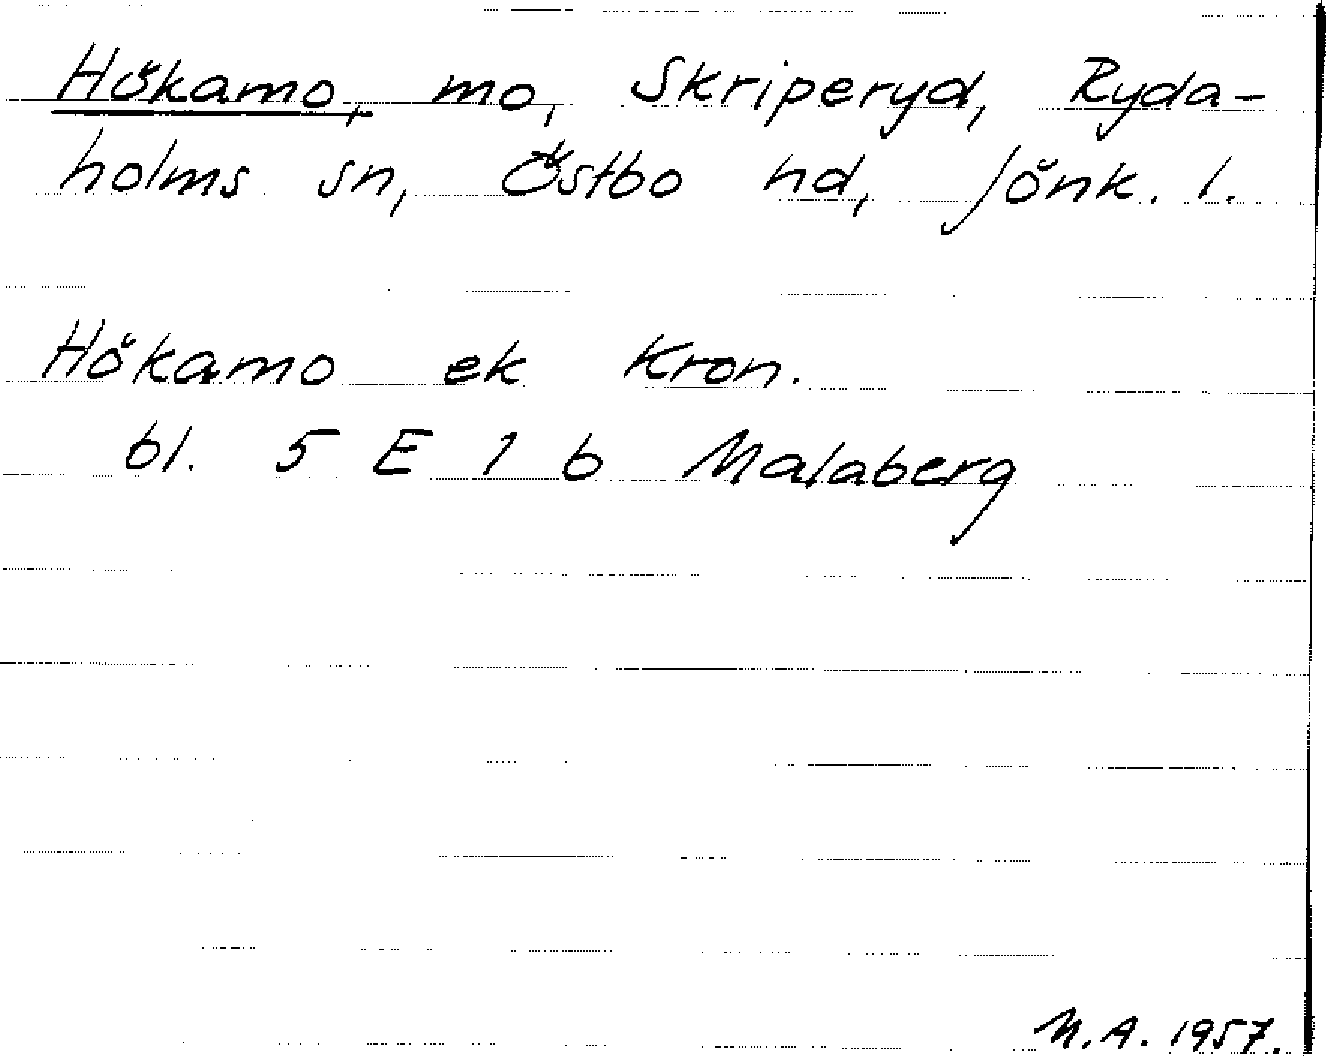 Hökamo, mo, Skriperyd, Ryda-
holms sn, Östbo hd, Jönk. l.
Hökamo ek Kron.
bl. 5 E 1 b Malaberg
N.A. 1957.